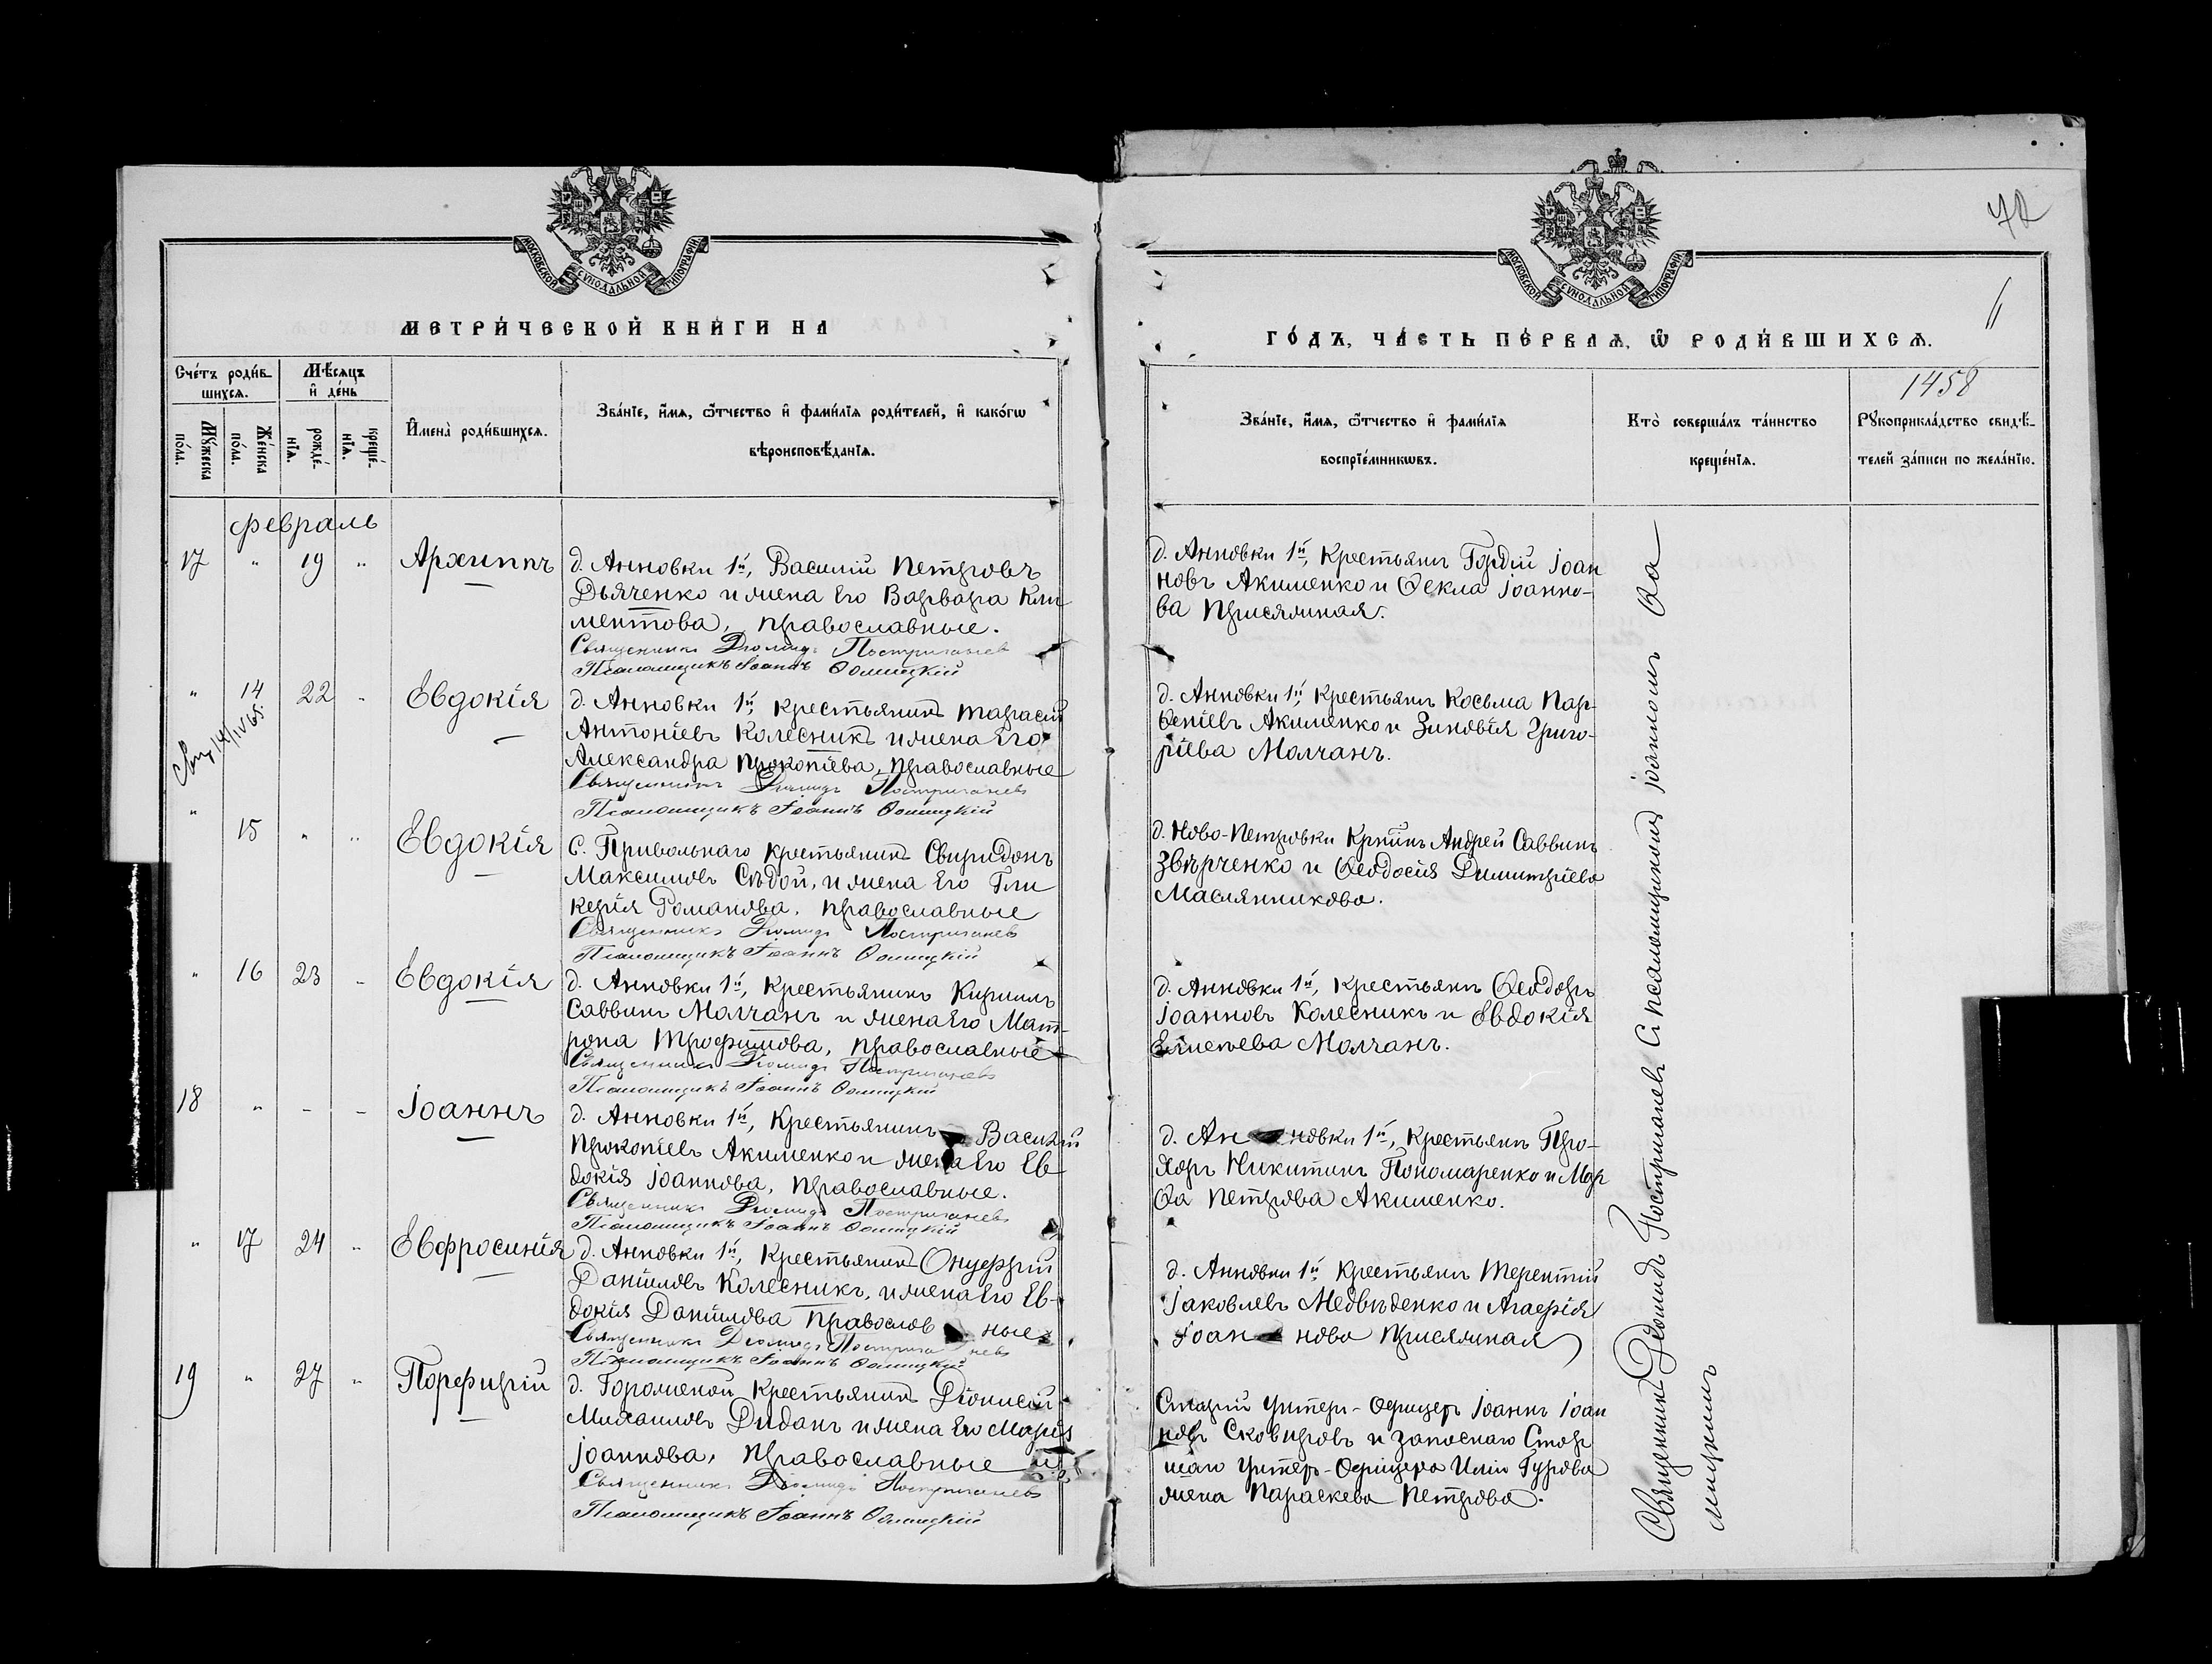 МОСКОВСКОЙ СУНОДАЛЬНОЙ ТИПОГРАФІИ
МЕТРИ́ЧЕСКОЙ КНИ́ГИ НА
Сче́тъ роди́в-
шихсѧ.
Мѣ́сѧцъ
и҆ де́нь
Мꙋ́жеска
по́ла.
Же́нска
по́ла.
рожде́-
нїѧ.
креще́-
нїѧ.
И҆мена̀ роди́вшихсѧ.
Зва́нїе, и҆́мѧ, ѻ҆́тчество и҆ фами́лїѧ роди́телей, и҆ како́гѡ
вѣроисповѣ́данїѧ.
Февраль
17 " 19 " Архиппъ
д. Анновки 1й, Василій Петровъ
Дьяченко и жена его Варвара Кли
ментова, православные.
Священникъ Діомидъ Постриганевъ
Псаломщикъ Іоаннъ Ѳомицкій
" 14 22 " Евдокія
14/IV 65.
д. Анновки 1й, крестьянинъ Тарасій
Антоніевъ Колесникъ и жена его
Александра Прокопіева, православные
Священникъ Діомидъ Постриганевъ
Псаломщикъ Іоаннъ Ѳомицкій
" 15 " " Евдокія
с. Привольнаго крестьянинъ Свиридонъ
Максимовъ Сѣдой, и жена его Гли
керія Романова, православные
Священникъ Діомидъ Постриганевъ
Псаломщикъ Іоаннъ Ѳомицкій
" 16 23 " Евдокія
д. Анновки 1й, Крестьянинъ Кириллъ
Саввинъ Молчанъ и жена его Мат-
рона Трофимова, православные
Священникъ Діомидъ Постриганевъ
Псаломщикъ Іоаннъ Ѳомицкій
18 " - - Іоаннъ
д. Анновки 1й, Крестьянинъ Василій
Прокопіевъ Акименко и жена его Ев
докія Іоаннова, православные.
Священникъ Діомидъ Постриганевъ
Псаломщикъ Іоаннъ Ѳомицкій
" 17 24 " Евфросинія
д. Анновки 1й, Крестьянинъ Онуфрій
Даніиловъ Колесникъ, и жена его Ев-
докія Даніилова православ ные
Священникъ Діомидъ Постриганевъ
Псаломщикъ Іоаннъ Ѳомицкій
19 " 27 " Порфирій
д. Горожены Крестьянинъ Діонисій
Михаиловъ Диданъ и жена его Марія
Іоаннова, Православные
Священникъ Діомидъ Постриганевъ
Псаломщикъ Іоаннъ Ѳомицкій
72
МОСКОВСКОЙ СУНОДАЛЬНОЙ ТИПОГРАФІИ
11
ГО́ДЪ, ЧА́СТЬ ПЕ́РВАѦ, Ѡ҆ РОДИ́ВШИХСѦ.
1458
Зва́нїе, и҆́мѧ, ѻ҆́тчество и҆ фами́лїѧ
воспрїе́мникѡвъ.
Кто̀ соверша́лъ та́инство
креще́нїѧ.
Рꙋкоприкла́дство свидѣ́-
телей за́писи по жела́нїю.
д. Анновки 1й, Крестьянъ Гордій Іоан
новъ Акименко и Ѳекла Іоанно-
ва Присяжная.
д. Анновки 1й, Крестьянъ Косьма Пар-
ѳеніевъ Акименко и Зиновія Григо-
ріева Молчанъ.
д. Ново-Петровки Крнинъ Андрей Саввинъ
Звѣрченко и Ѳеодосія Димитріева
Маслянникова.
д. Анновки 1й, Крестьянъ Ѳеодоръ
Іоанновъ Колесникъ и Евдокія
Елисеева Молчанъ.
д. Ан новки 1й, Крестьянъ Про-
хоръ Никитинъ Пономаренко и Мар
ѳа Петрова Акименко.
д. Анновки 1й Крестьянъ Терентій
Іаковлевъ Медвѣденко и Агафія
Іоан нова Присяжная
Старшій Унтеръ-Офицеръ Іоаннъ Іоан
новъ Сковировъ и запаснаго Стар
шаго Унтеръ-Офицера Иліи Гурова
жена Параскева Петрова.
Священникъ Діомидъ Постриганевъ съ псаломщикомъ Іоанномъ Ѳо
мицкимъ